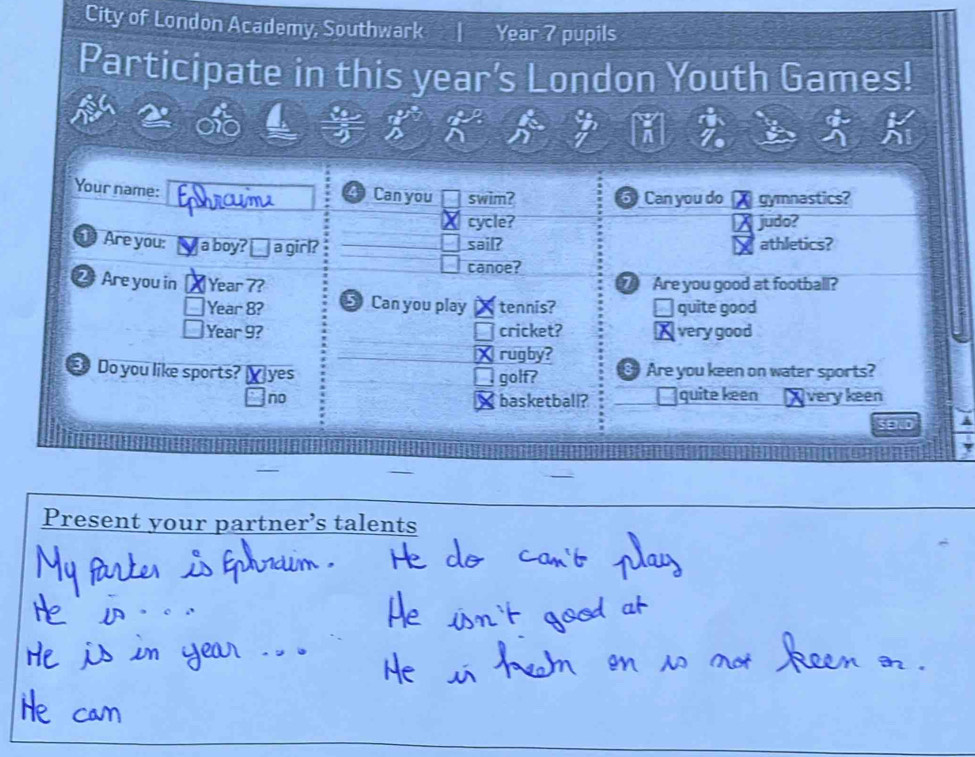 City of London Academy, Southwark | Year 7 pupils
Participate in this year's London Youth Games!
Your name: Ephraim
1 Are you: a boy? a girl?
2 Are you in Year 7?
Year 8?
Year 9?
3 Do you like sports? yes
no
4 Can you swim?
cycle?
sail?
canoe?
5 Can you play tennis?
cricket?
rugby?
golf?
basketball?
6 Can you do gymnastics?
judo?
athletics?
7 Are you good at football?
quite good
very good
8 Are you keen on water sports?
quite keen very keen
SEND
Present your partner's talents
My Parter is Ephraim.
He is ....
He is in year ...
He can
He do can't play
He isn't good at
He is keen on is not keen on.